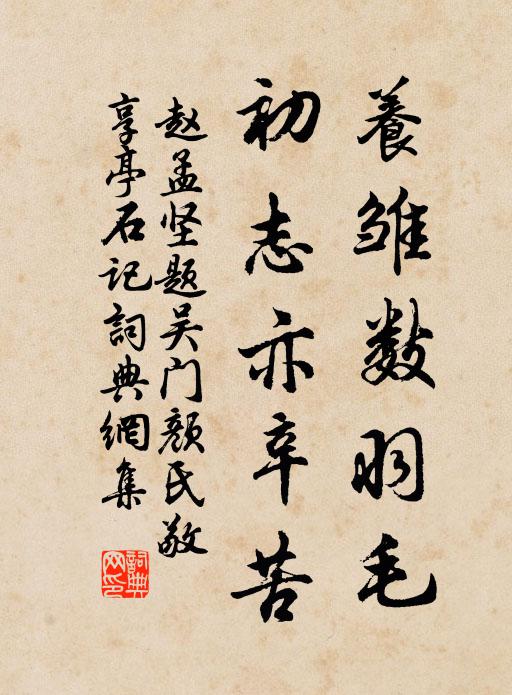 養雏数羽毛
初志亦辛苦
赵孟坚题吴门颜氏敬
享亭石记詞典網集
詞典网印